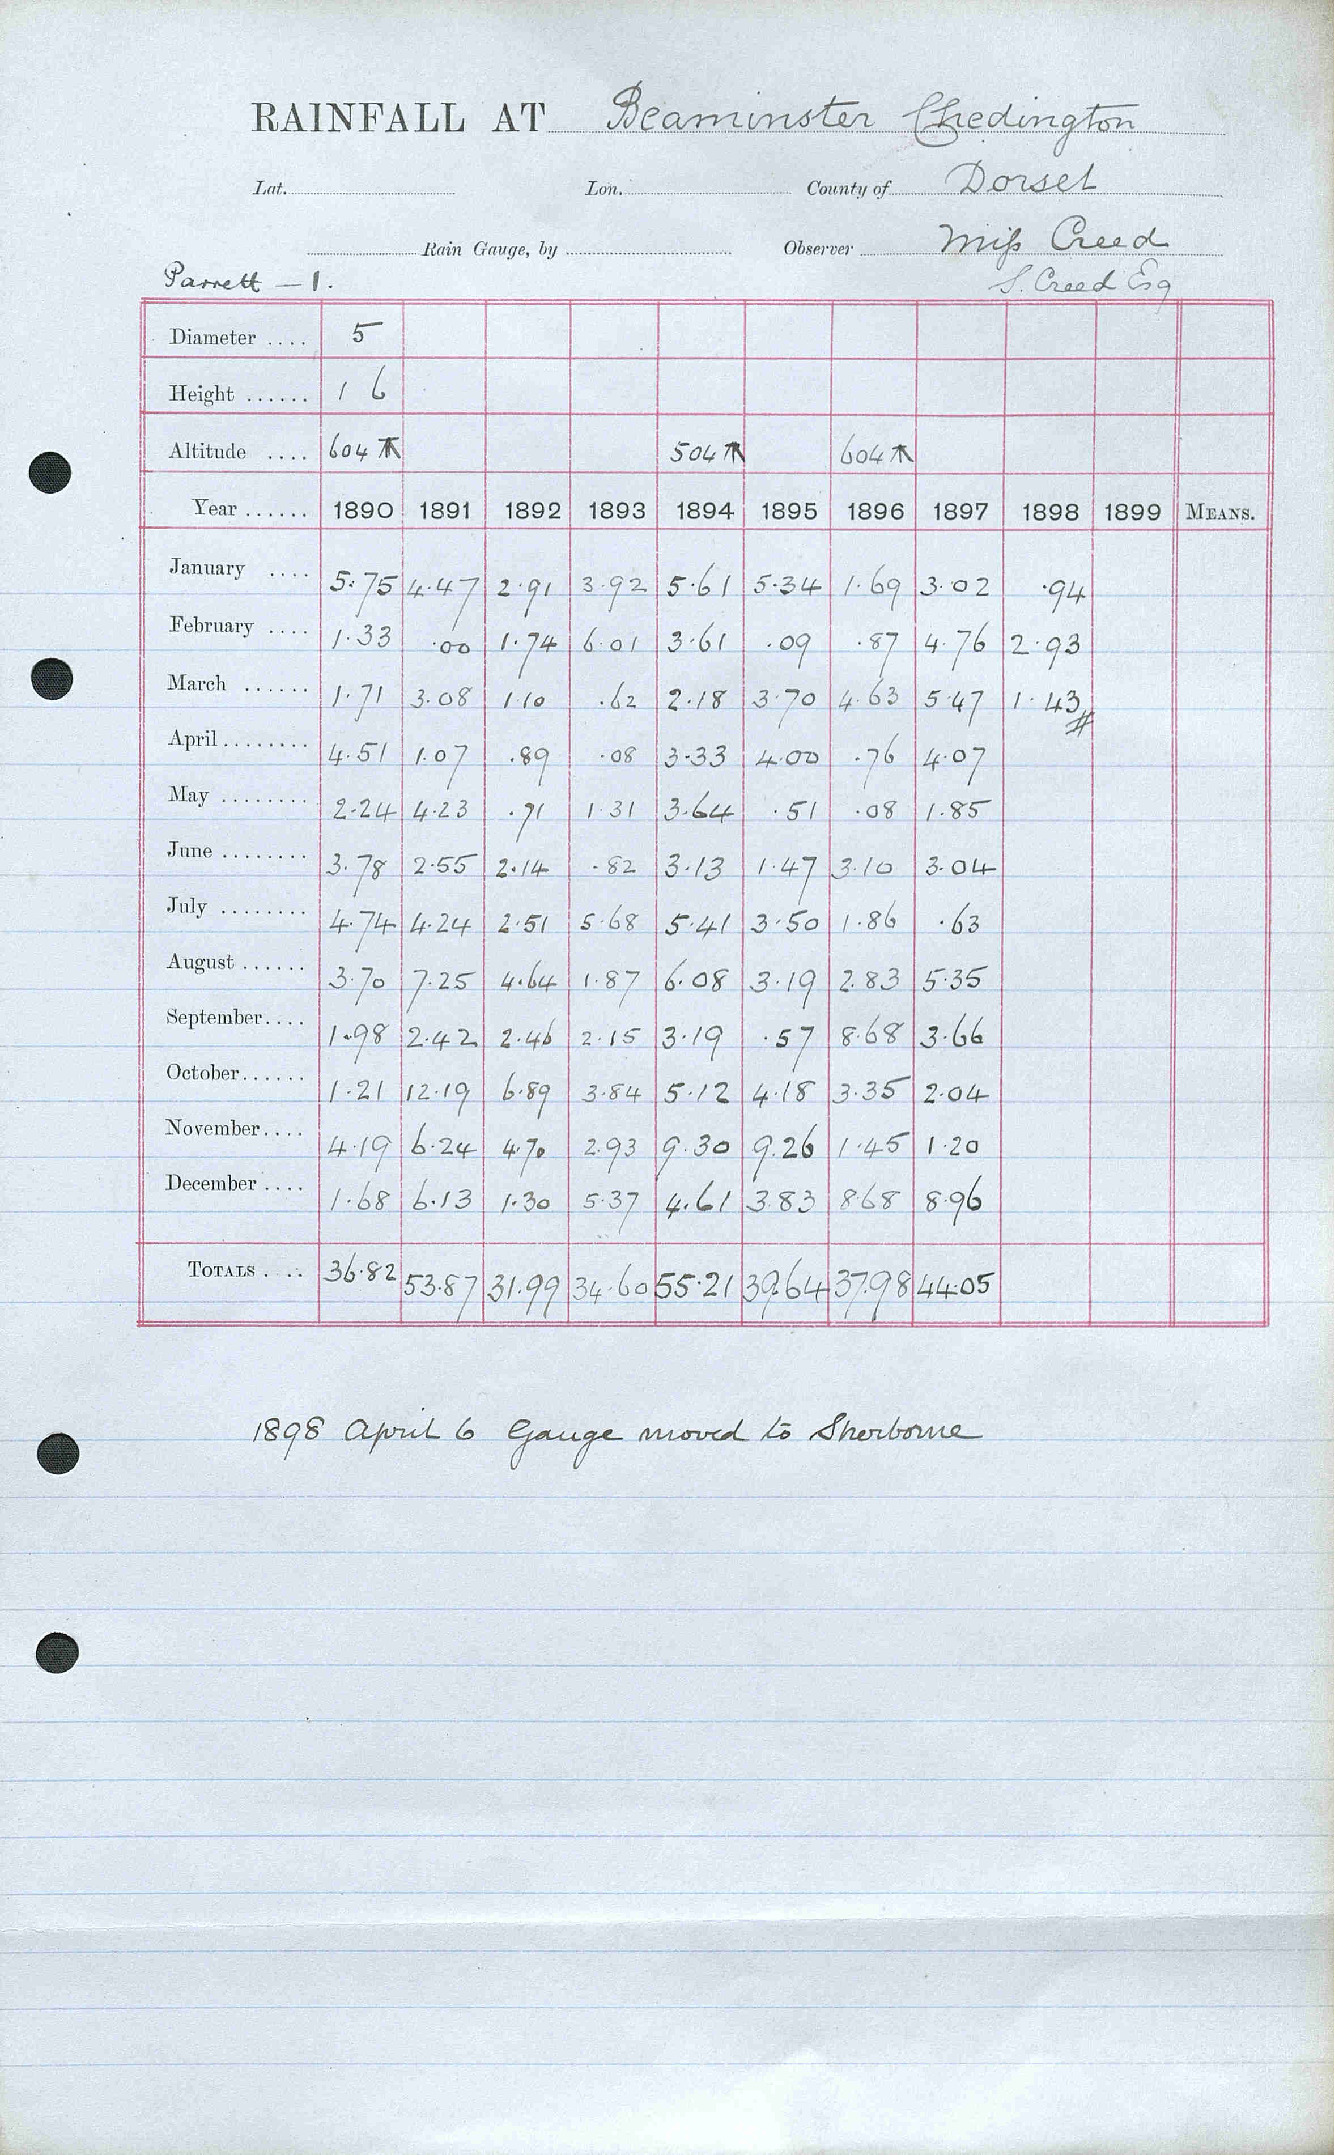 RAINFALL AT Beaminster Chedington
Lat. Lon. County of Dorset
Rain Gauge, by Observer Miss Creed
Parrett – 1. S. Creed Esq
Diameter .... 5
Height ...... 1 6
Altitude .... 604 504 604
Year ...... 1890 1891 1892 1893 1894 1895 1896 1897 1898 1899 MEANS.
January .... 5.75 4.47 2.91 3.92 5.61 5.34 1.69 3.02 .94
February .... 1.33 .00 1.74 6.01 3.61 .09 .87 4.76 2.93
March ...... 1.71 3.08 1.10 .62 2.18 3.70 4.63 5.47 1.43
April........ 4.51 1.07 .89 .08 3.33 4.00 .76 4.07
May ........ 2.24 4.23 .71 1.31 3.64 .51 .08 1.85
June ........ 3.78 2.55 2.14 .82 3.13 1.47 3.10 3.04
July ........ 4.74 4.24 2.51 5.68 5.41 3.50 1.86 .63
August ...... 3.70 7.25 4.64 1.87 6.08 3.19 2.83 5.35
September.... 1.98 2.42 2.46 2.15 3.19 .57 8.68 3.66
October...... 1.21 12.19 6.89 3.84 5.12 4.18 3.35 2.04
November.... 4.19 6.24 4.70 2.93 9.30 9.26 1.45 1.20
December .... 1.68 6.13 1.30 5.37 4.61 3.83 8.68 8.96
TOTALS .... 36.82 53.87 31.99 34.60 55.21 39.64 37.98 44.05
1898 April 6 Gauge moved to Sherborne